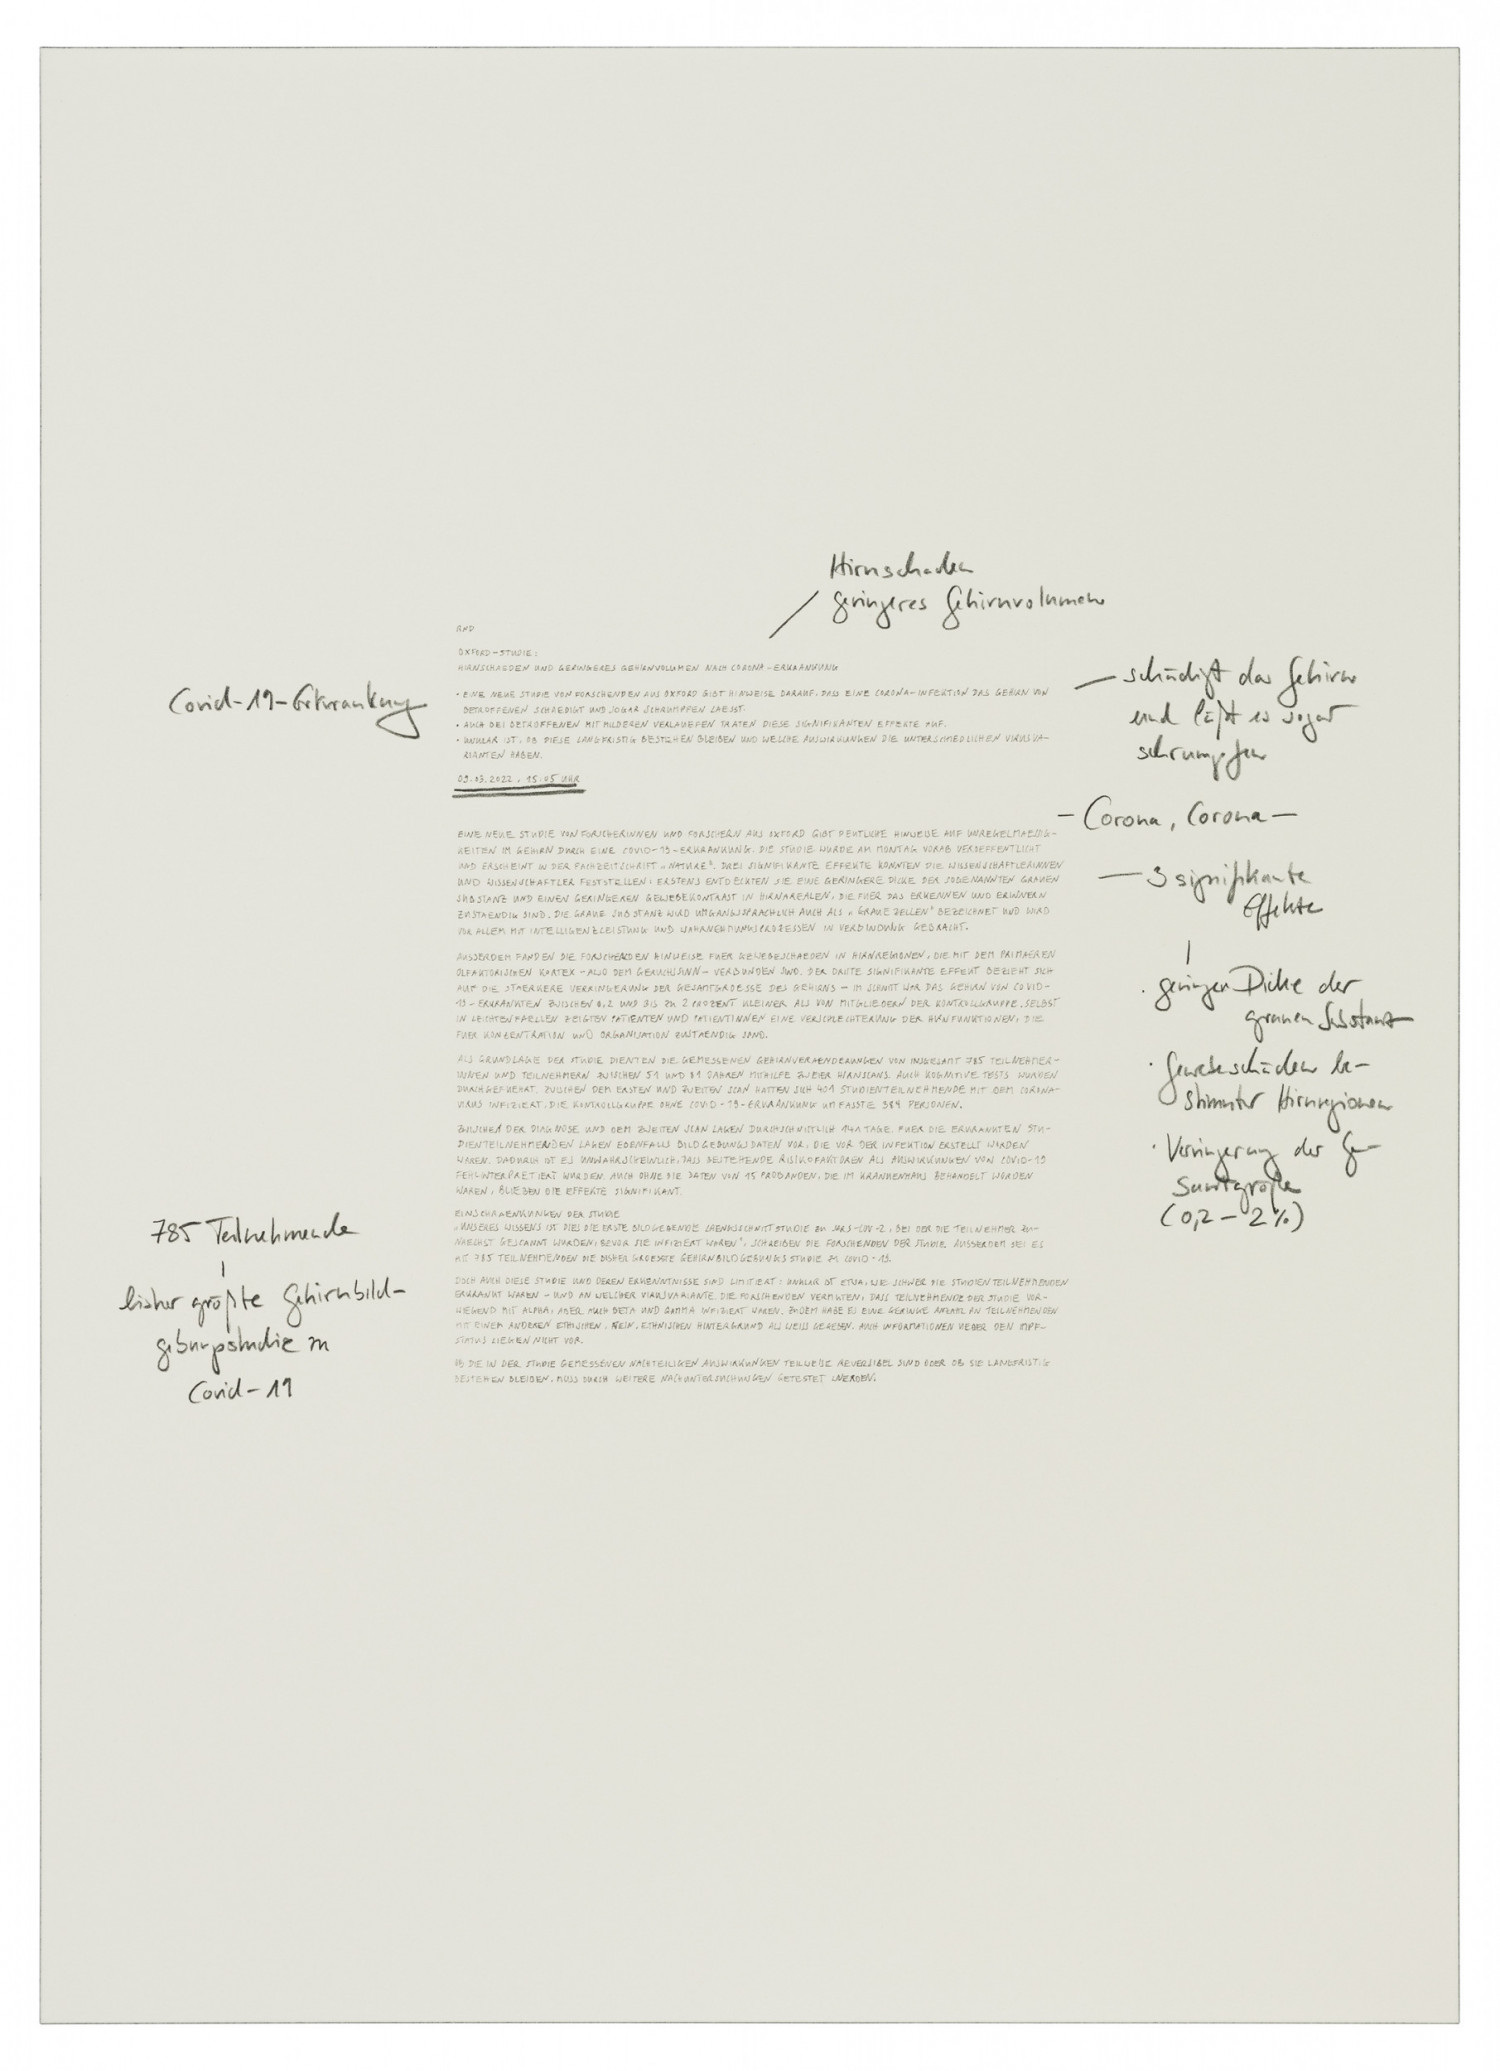 Hirnschaden
geringeres Gehirnvolumen
RND
OXFORD-STUDIE:
HIRNSCHAEDEN UND GERINGERES GEHIRNVOLUMEN NACH CORONA-ERKRANKUNG
Covid-19-Erkrankung
• EINE NEUE STUDIE VON FORSCHENDEN AUS OXFORD GIBT HINWEISE DARAUF, DASS EINE CORONA-INFEKTION DAS GEHIRN VON
BETROFFENEN SCHAEDIGT UND SOGAR SCHRUMPFEN LAESST.
• AUCH BEI BETROFFENEN MIT MILDEREN VERLAEUFEN TRATEN DIESE SIGNIFIKANTEN EFFEKTE AUF.
• UNKLAR IST, OB DIESE LANGFRISTIG BESTEHEN BLEIBEN UND WELCHE AUSWIRKUNGEN DIE UNTERSCHIEDLICHEN VIRUSVA-
RIANTEN HABEN.
09.03.2022, 15:05 UHR
— schädigt das Gehirn
und läßt es sogar
schrumpfen
EINE NEUE STUDIE VON FORSCHERINNEN UND FORSCHERN AUS OXFORD GIBT DEUTLICHE HINWEISE AUF UNREGELMAESSIG-
KEITEN IM GEHIRN DURCH EINE COVID-19-ERKRANKUNG. DIE STUDIE WURDE AM MONTAG VORAB VEROEFFENTLICHT
UND ERSCHEINT IN DER FACHZEITSCHRIFT „NATURE“. DREI SIGNIFIKANTE EFFEKTE KONNTEN DIE WISSENSCHAFTLERINNEN
UND WISSENSCHAFTLER FESTSTELLEN: ERSTENS ENTDECKTEN SIE EINE GERINGERE DICKE DER SOGENANNTEN GRAUEN
SUBSTANZ UND EINEN GERINGEREN GEWEBEKONTRAST IN HIRNAREALEN, DIE FUER DAS ERKENNEN UND ERINNERN
ZUSTAENDIG SIND. DIE GRAUE SUBSTANZ WIRD UMGANGSSPRACHLICH AUCH ALS „GRAUE ZELLEN“ BEZEICHNET UND WIRD
VOR ALLEM MIT INTELLIGENZLEISTUNG UND WAHRNEHMUNGSPROZESSEN IN VERBINDUNG GEBRACHT.
AUSSERDEM FANDEN DIE FORSCHENDEN HINWEISE FUER GEWEBESCHAEDEN IN HIRNREGIONEN, DIE MIT DEM PRIMAEREN
OLFAKTORISCHEN KORTEX – ALSO DEM GERUCHSSINN – VERBUNDEN SIND. DER DRITTE SIGNIFIKANTE EFFEKT BEZIEHT SICH
AUF DIE STAERKERE VERRINGERUNG DER GESAMTGROESSE DES GEHIRNS – IM SCHNITT WAR DAS GEHIRN VON COVID-
19-ERKRANKTEN ZWISCHEN 0,2 UND BIS ZU 2 PROZENT KLEINER ALS VON MITGLIEDERN DER KONTROLLGRUPPE. SELBST
IN LEICHTEN FAELLEN ZEIGTEN PATIENTEN UND PATIENTINNEN EINE VERSCHLECHTERUNG DER HIRNFUNKTIONEN, DIE
FUER KONZENTRATION UND ORGANISATION ZUSTAENDIG SIND.
ALS GRUNDLAGE DER STUDIE DIENTEN DIE GEMESSENEN GEHIRNVERAENDERUNGEN VON INSGESAMT 785 TEILNEHMER-
INNEN UND TEILNEHMERN ZWISCHEN 51 UND 81 JAHREN MITHILFE ZWEIER HIRNSCANS. AUCH KOGNITIVE TESTS WURDEN
DURCHGEFUEHRT. ZWISCHEN DEM ERSTEN UND ZWEITEN SCAN HATTEN SICH 401 STUDIENTEILNEHMENDE MIT DEM CORONA-
VIRUS INFIZIERT. DIE KONTROLLGRUPPE OHNE COVID-19-ERKRANKUNG UMFASSTE 384 PERSONEN.
ZWISCHEN DER DIAGNOSE UND DEM ZWEITEN SCAN LAGEN DURCHSCHNITTLICH 141 TAGE. FUER DIE ERKRANKTEN STU-
DIENTEILNEHMENDEN LAGEN EBENFALLS BILDGEBUNGSDATEN VOR, DIE VOR DER INFEKTION ERSTELLT WURDEN
WAREN. DADURCH IST ES UNWAHRSCHEINLICH, DASS BESTEHENDE RISIKOFAKTOREN ALS AUSWIRKUNGEN VON COVID-19
FEHLINTERPRETIERT WURDEN. AUCH OHNE DIE DATEN VON 15 PROBANDEN, DIE IM KRANKENHAUS BEHANDELT WORDEN
WAREN, BLIEBEN DIE EFFEKTE SIGNIFIKANT.
EINSCHRAENKUNGEN DER STUDIE
„UNSERES WISSENS IST DIES DIE ERSTE BILDGEBENDE LAENGSSCHNITTSTUDIE ZU SARS-COV-2, BEI DER DIE TEILNEHMER ZU-
NAECHST GESCANNT WURDEN, BEVOR SIE INFIZIERT WAREN“, SCHREIBEN DIE FORSCHENDEN DER STUDIE. AUSSERDEM SEI ES
MIT 785 TEILNEHMENDEN DIE BISHER GROESSTE GEHIRNBILDGEBUNGSSTUDIE ZU COVID-19.
DOCH AUCH DIESE STUDIE UND DEREN ERKENNTNISSE SIND LIMITIERT: UNKLAR IST ETWA, WIE SCHWER DIE STUDIENTEILNEHMENDEN
ERKRANKT WAREN – UND AN WELCHER VIRUSVARIANTE. DIE FORSCHENDEN VERMUTEN, DASS TEILNEHMENDE DER STUDIE VOR-
WIEGEND MIT ALPHA, ABER AUCH BETA UND GAMMA INFIZIERT WAREN. ZUDEM HABE ES EINE GERINGE ANZAHL AN TEILNEHMENDEN
MIT EINEM ANDEREN ETHISCHEN, NEIN, ETHNISCHEN HINTERGRUND ALS WEISS GEGEBEN. AUCH INFORMATIONEN UEBER DEN IMPF-
STATUS LIEGEN NICHT VOR.
OB DIE IN DER STUDIE GEMESSENEN NACHTEILIGEN AUSWIRKUNGEN TEILWEISE REVERSIBEL SIND ODER OB SIE LANGFRISTIG
BESTEHEN BLEIBEN, MUSS DURCH WEITERE NACHUNTERSUCHUNGEN GETESTET WERDEN.
— Corona, Corona —
— 3 signifikante
Effekte
· geringere Dicke der
grauen Substanz
· Gewebeschäden be-
stimmter Hirnregionen
· Verringerung der Ge-
samtgröße
(0,2 – 2%)
785 Teilnehmende
bisher größte Gehirnbild-
gebungsstudie zu
Covid-19